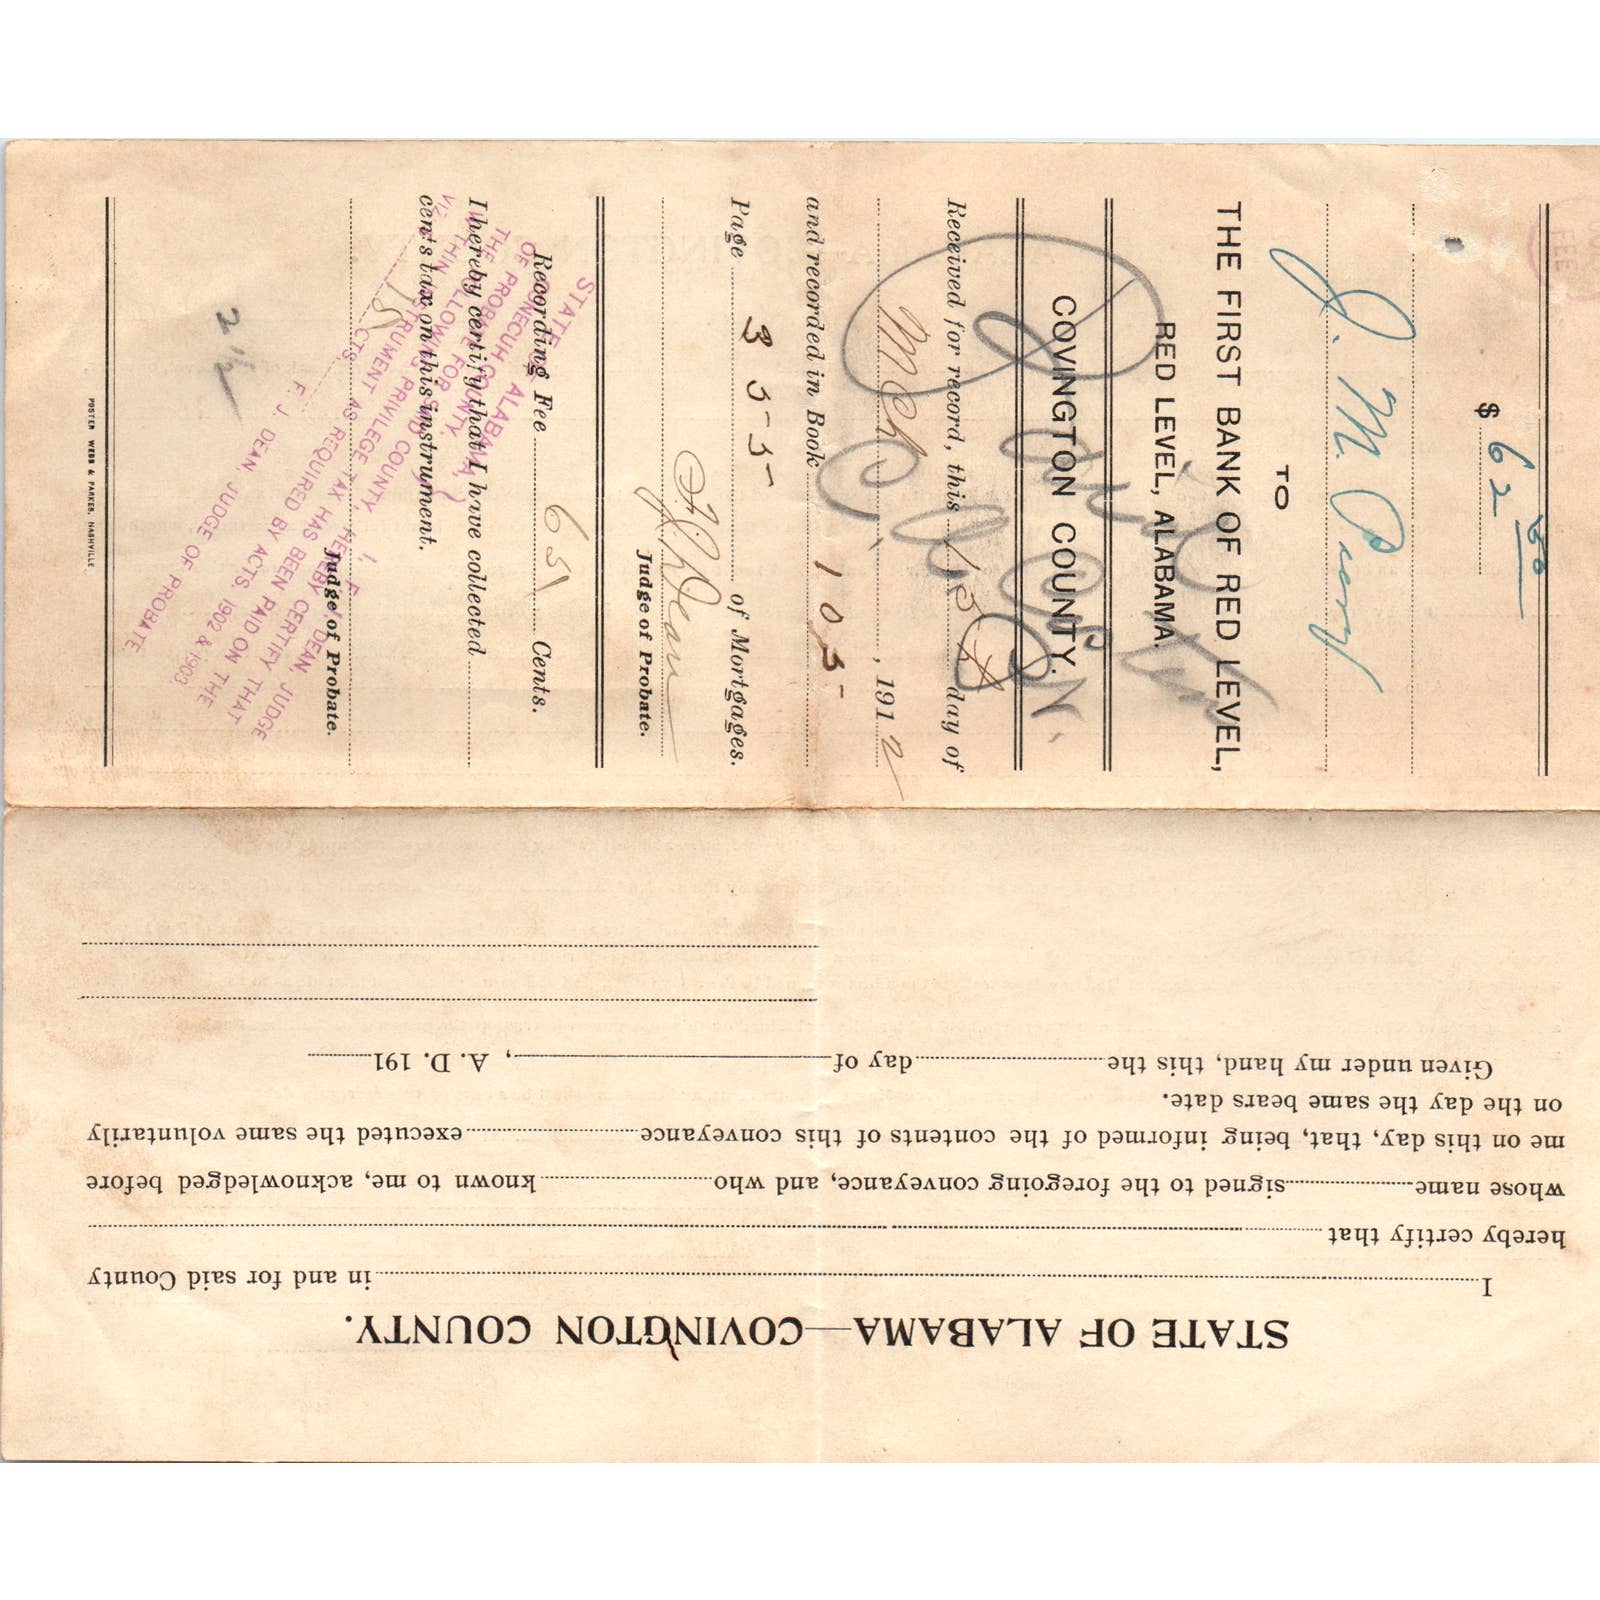 $ 62 00
J. M. Parry
TO
THE FIRST BANK OF RED LEVEL,
RED LEVEL, ALABAMA.
COVINGTON COUNTY.
Received for record, this 15 day of
Mch , 1912
and recorded in Book 105
Page 355 of Mortgages.
F. J. Dean
Judge of Probate.
Recording Fee 65 Cents.
I hereby certify that I have collected
cents tax on this instrument.
Judge of Probate.
STATE OF ALABAMA,
CONECUH COUNTY.
I, F. J. DEAN, JUDGE
OF PROBATE FOR SAID COUNTY, HEREBY CERTIFY THAT
THE FOLLOWING PRIVILEGE TAX HAS BEEN PAID ON THE
WITHIN INSTRUMENT AS REQUIRED BY ACTS. 1902 & 1903
VIZ 15 CTS.
F. J. DEAN, JUDGE OF PROBATE.
FOSTER WEBB & PARKES, NASHVILLE
STATE OF ALABAMA—COVINGTON COUNTY.
I in and for said County
hereby certify that
whose name signed to the foregoing conveyance, and who known to me, acknowledged before
me on this day, that, being informed of the contents of this conveyance executed the same voluntarily
on the day the same bears date.
Given under my hand, this the day of , A. D. 191